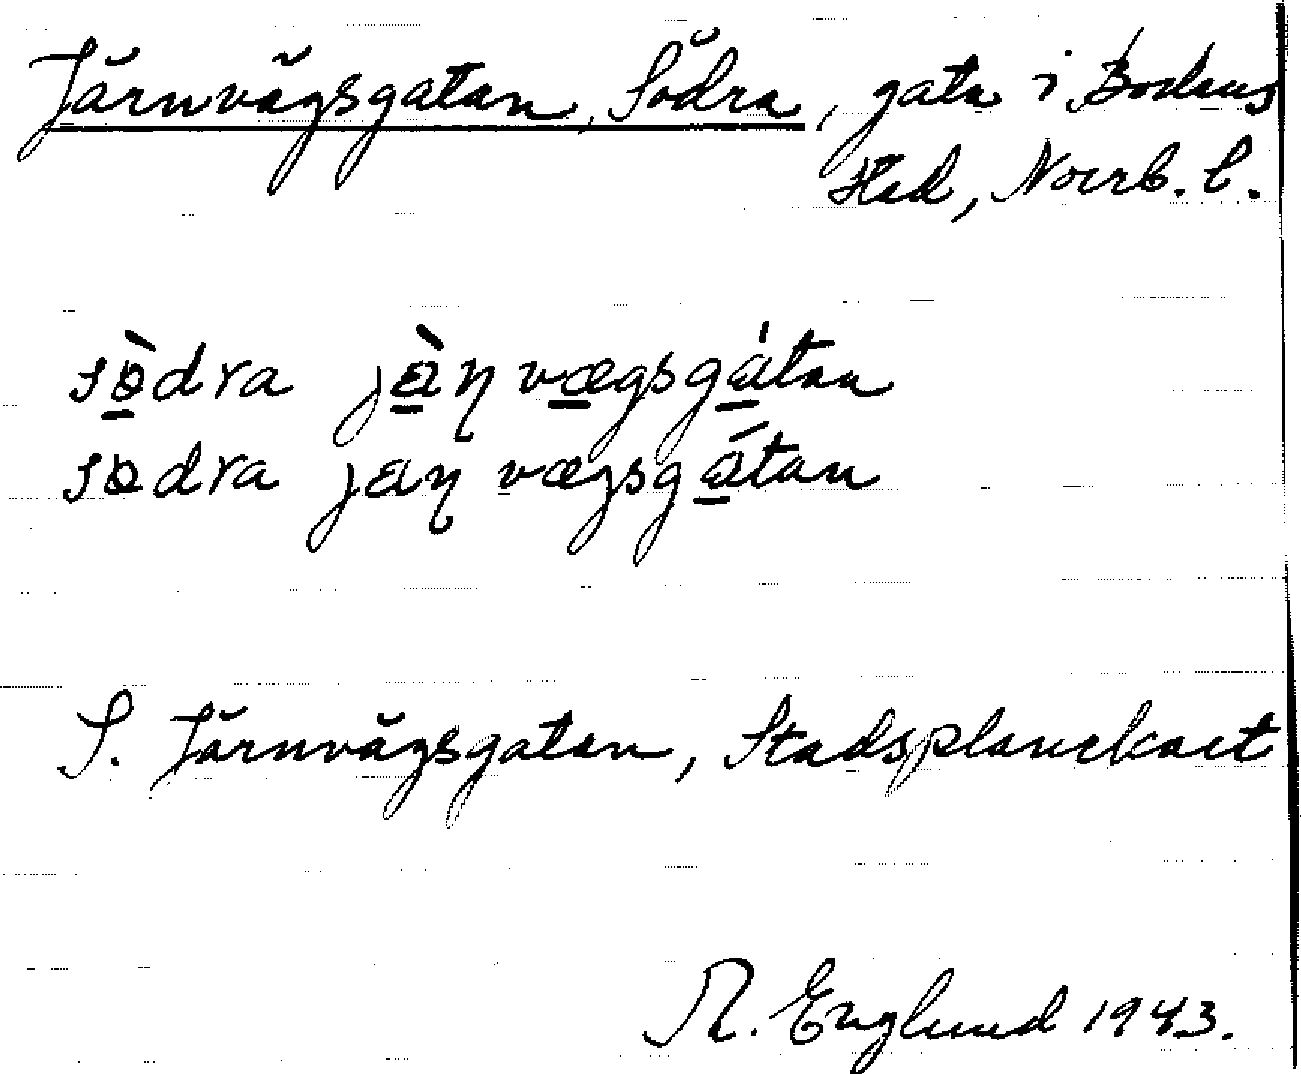 Järnvägsgatan, Södra, gata i Bodens
stad, Norrb. l.
södra jäɳvægsgátan
södra jæɳ vægsgátan
S. Järnvägsgatan, Stadsplanekart
R. Englund 1943.